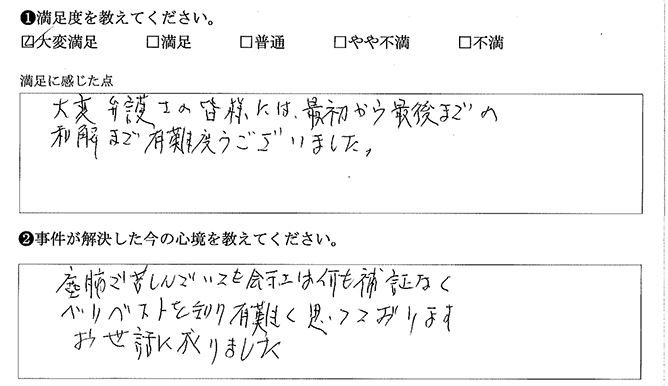 ❶満足度を教えてください。
☑大変満足 □満足 □普通 □やや不満 □不満
満足に感じた点
大変弁護士の皆様には、最初から最後までの
和解まで有難度うございました。
❷事件が解決した今の心境を教えてください。
塵肺で苦しんでいても会社は何も補証なく
ベリベストを知り有難く思いっております
お世話に成りました